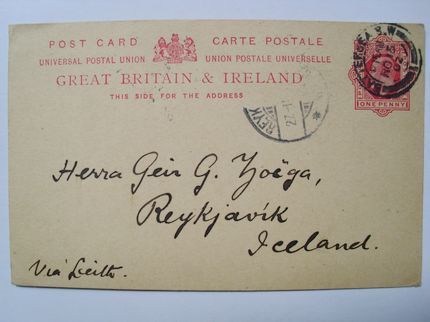 POST CARD CARTE POSTALE
UNIVERSAL POSTAL UNION UNION POSTALE UNIVERSELLE
GREAT BRITAIN & IRELAND
THIS SIDE FOR THE ADDRESS
BATTERSEA S.W
NO
ONE PENNY
REYK
27-1
Herra Geir G. Zoëga,
Reykjavík
Iceland.
Viâ Leith.